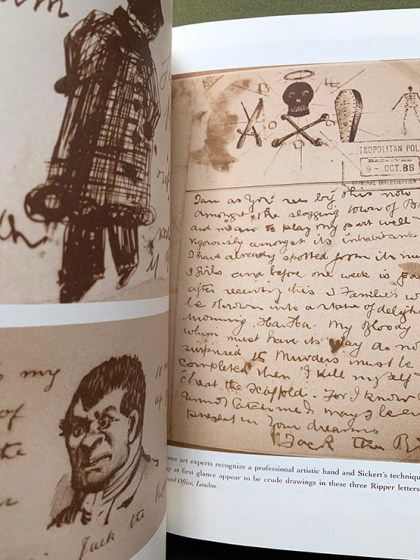 is my
of
Jack the
TROPOLITAN POL
9 - OCT. 88
CRIMINAL INVESTIGATION
I am as you see by this now
amongst the slogging town of B
and mean to play my part well
vigorously amongst its inhabitants
I have already spotted from its mu
3 girls and before one week is pa
after receiving this 3 Families w
be thrown into a state of deligh
mourning. Ha. Ha. My bloody
whim must have its way do no
surprised 15 Murders must be
completed then I kill myself
cheat the scaffold. For I know
cannot catch me I may be e
present in your dreams
Jack the
ome art experts recognize a professional artistic hand and Sickert's technique
y at first glance appear to be crude drawings in these three Ripper letters.
ord Office, London.